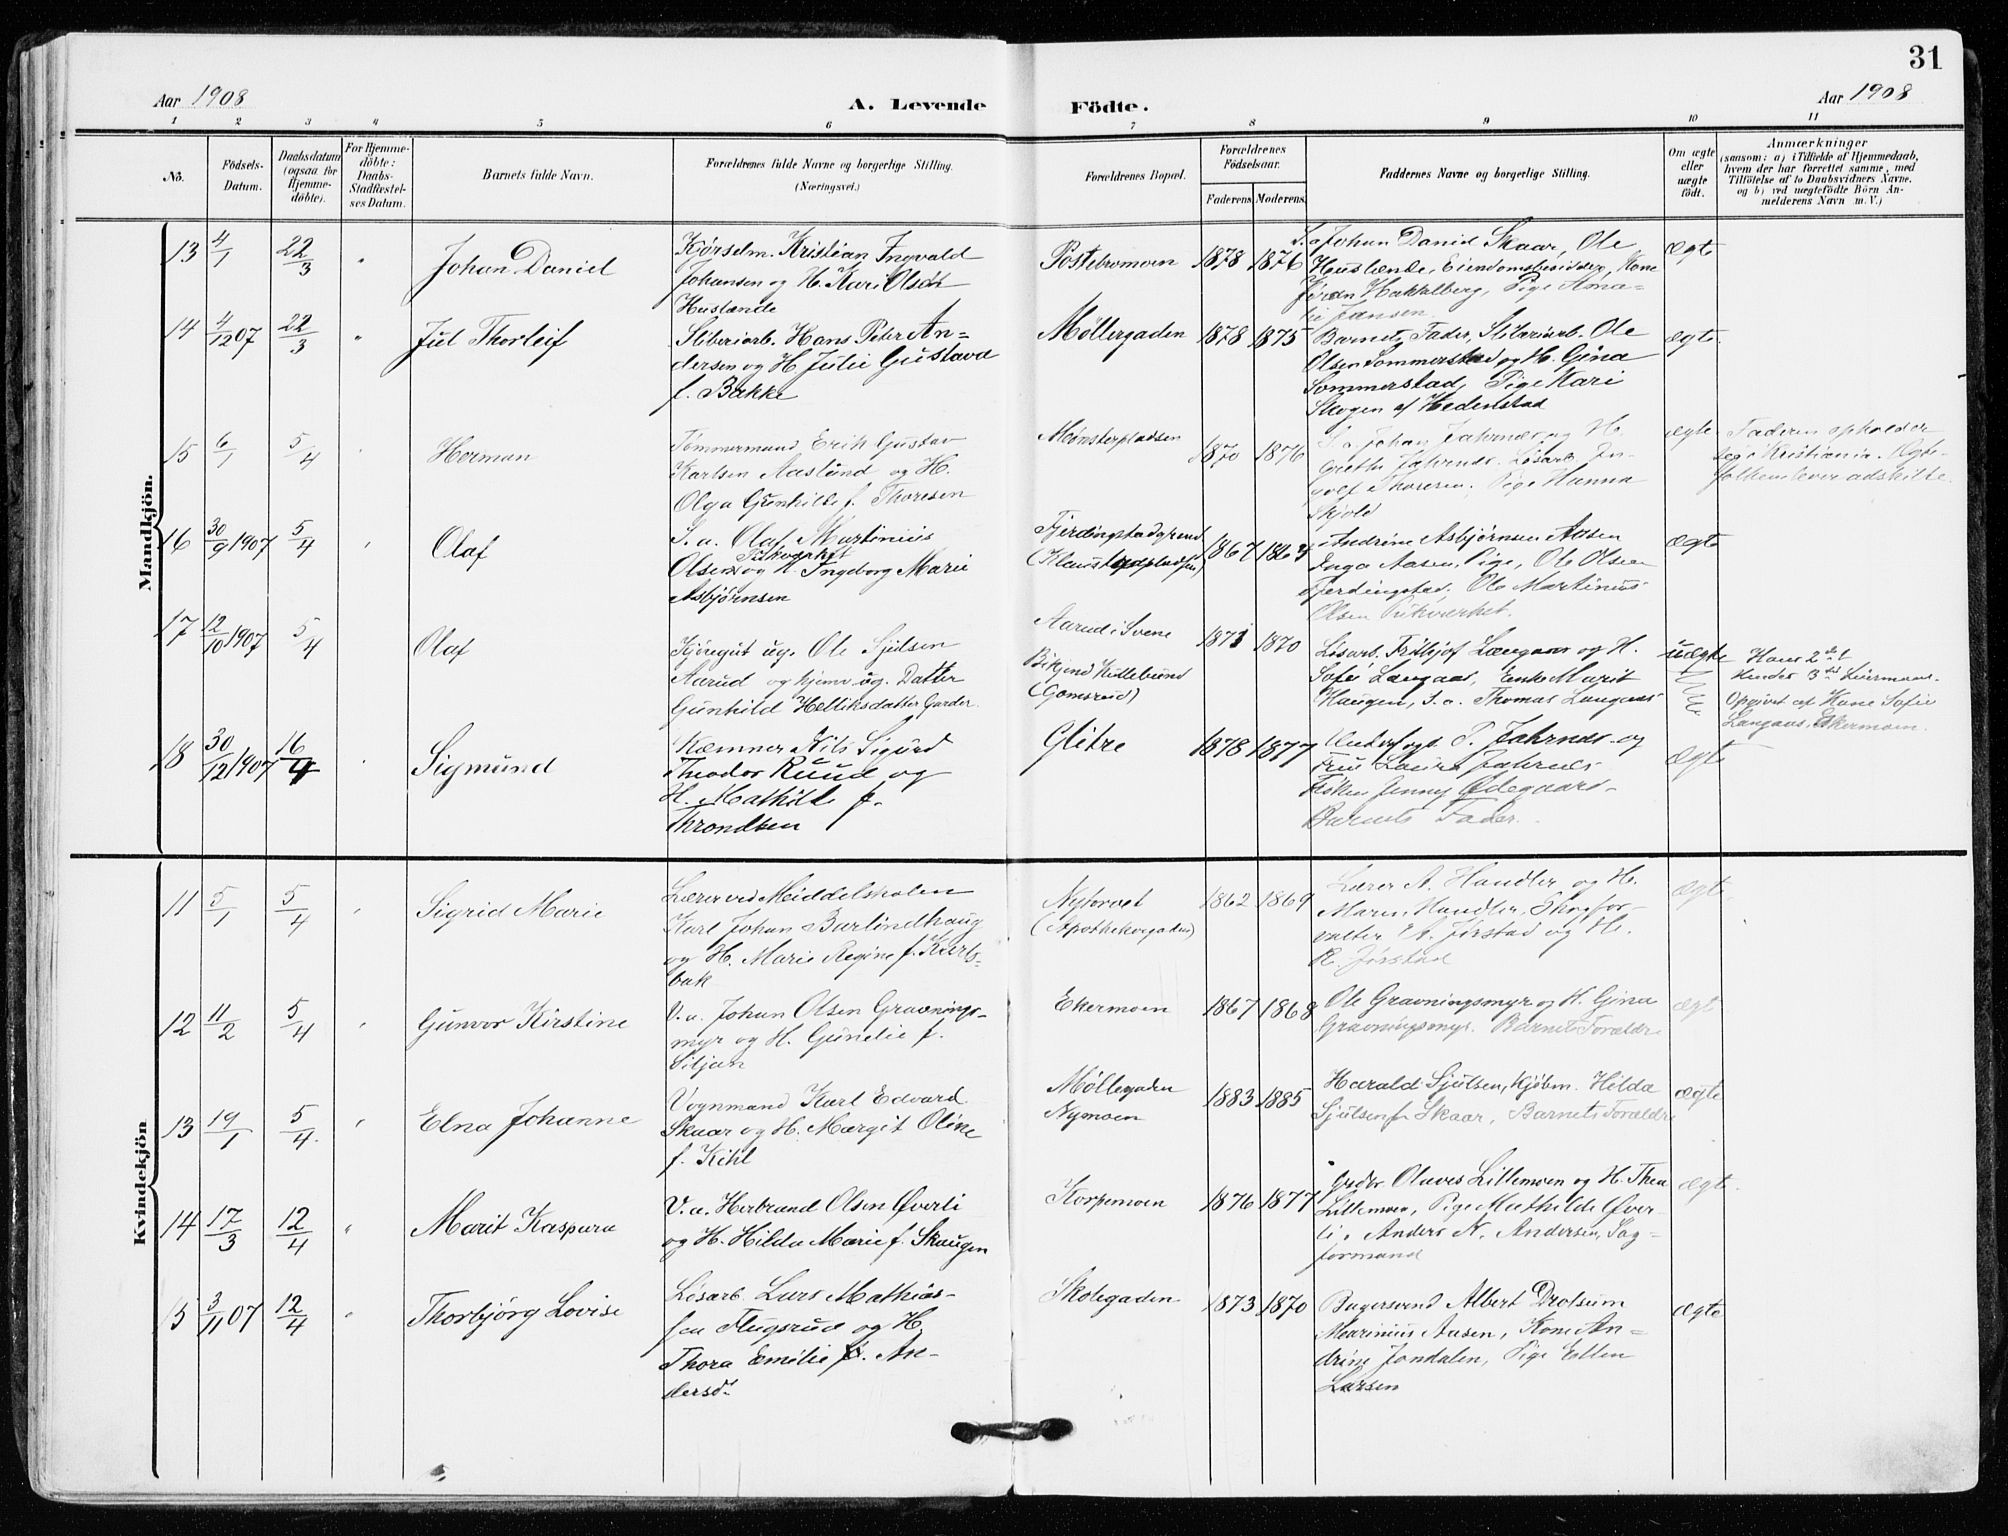 31
Aar 1908
A. Levende Födte.
Aar 1908
1 2 3 4 5 6 7 8 9 10 11
No.
Födsels-
Datum.
Daabsdatum
(ogsaa for
Hjemme-
döbte).
For Hjemme-
döbte:
Daabs-
Stadfæstel-
ses Datum.
Barnets fulde Navn.
Forældrenes fulde Navne og borgerlige Stilling.
(Næringsvei.)
Forældrenes Bopæl.
Forældrenes
Födselsaar.
Faderens Moderens
Faddernes Navne og borgerlige Stilling.
Om ægte
eller
uægte
födt.
Anmærkninger
(saasom: a) i Tilfælde af Hjemmedaab,
hvem der har forrettet samme, med
Tilföielse af to Daabsvidners Navne,
og b) ved uægtefödte Börn An-
melderens Navn m. V.)
Mandkjön.
13 4/1 22/3 " Johan Daniel
Kørselm. Kristian Ingvald
Johansen og H. Kari Olsdt
Huslænde
Postebromoen 1878 1876
S. a. Johan Daniel Skaar, Ole
Huslænde, Eiendomsbesidder, Kone
Jøran Hakkelberg, Pige Ama-
lie Jansen
ægte
14 4/12 07 22/3 " Jul Thorleif
Sliberiarb. Hans Peter An-
dersen og H. Julie Gustava
f. Bakke
Møllergaden 1878 1875
Barnets Fader, Sliberiarb. Ole
Olsen Sommerstad og H. Gina
Sommerstad, Pige Kari
Skogen af Hedenstad
ægte
15 6/1 5/4 " Herman
Tømmermand Erik Gustav
Karlsen Aaslund og H.
Olga Gunhilde f. Thoresen
Mønsterpladsen 1870 1876
S. a. Johan Jahrnæs og H.
Grethe Jahrnæs. Løsarb. In-
golf Thoresen. Pige Hanna
Skjold
ægte
Faderen opholder
seg i Kristiania. Ægte-
folkene lever adskilte.
16 30/9 1907 5/4 " Olaf
S. a. Olaf Martinius
Olsen Pukverket og H. Ingeborg Marie
Asbjørnsen
Fjerdingstadgrund
1867
Andrine Asbjørnsen Aasen
Inga Aasen, Pige, Ole Olsen
Fjerdingstad, Ole Martinius
Olsen Pukverket.
ægte
17 12/10 1907 5/4 Olaf
ug. Ole Sjulsen
Aarud og hjemv. ug. Datter
Gunhild Helliksdatter Garder.
Aarud i Svene
(Gomsrud)
1871 1870
Løsarb. Fritjof Langaas og H.
Sofie Langaas, Enke Marit
Haugen, S. a. Thomas Langaas
uægte
Hans 2det
Hendes 3die Leiermaal.
Opgivet af Kone Sofie
Langaas, Ekermoen.
18 30/12 1907 16/4 " Sigmund
Kæmner Nils Sigurd
Theodor Ruud og
H. Mathilde f.
Throndsen
Glitre 1878 1877
P. Jahrnæs og
Fru Laura Jahrnæs
Frøken Jenny Ødegaard-
Barnets Fader.
ægte
Kvindekjön
11 5/1 5/4 " Sigrid Marie
Lærer ved Middelskolen
Karl Johan Barlindhaug
og H. Marie Regine f.
bak
Nytorvet
(Apothekergaden)
1862 1869
Lærer A. Handler og H.
Maren Handler, Skogfor-
valter A. Jørstad og H.
R. Jørstad
ægte
12 11/2 5/4 " Gunvor Kirstine
V. a. Johan Olsen Gravnings-
myr og H. Gunelie f.
Siljan
Ekermoen 1867 1868
Ole Gravningsmyr og H. Gina
Gravningsmyr. Barnets Forældre
ægte
13 19/1 5/4. " Elna Johanne
Vognmand Karl Edvard
Skaar og H. Margit Oline
f. Kihl
Møllegaden
Nymoen
1883 1885
Harald Sjulsen, Kjøbm. Hilda
Sjulsen f. Skaar, Barnets Forældre
ægte
14 17/3 12/4 " Marit Kaspara
V. a. Herbrand Olsen Øverli
og H. Hilda Marie f. Skaugen
Korpemoen 1876 1877
Olaves Lillemoen og H. Thea
Lillemoen, Pige Mathilde Øver-
li, Anders N. Andersen, Sag-
formand
ægte
15 3/11 07 12/4 " Thorbjørg Lovise
Løsarb. Lars Mathias-
sen Flugsrud og H.
Thora Emilie f. An-
dersdt
Skolegaden 1873 1870
Bagersvend Albert Drolsum
Marinius Aasen, Kone An-
drine Jondalen, Pige Ellen
Larsen
ægte